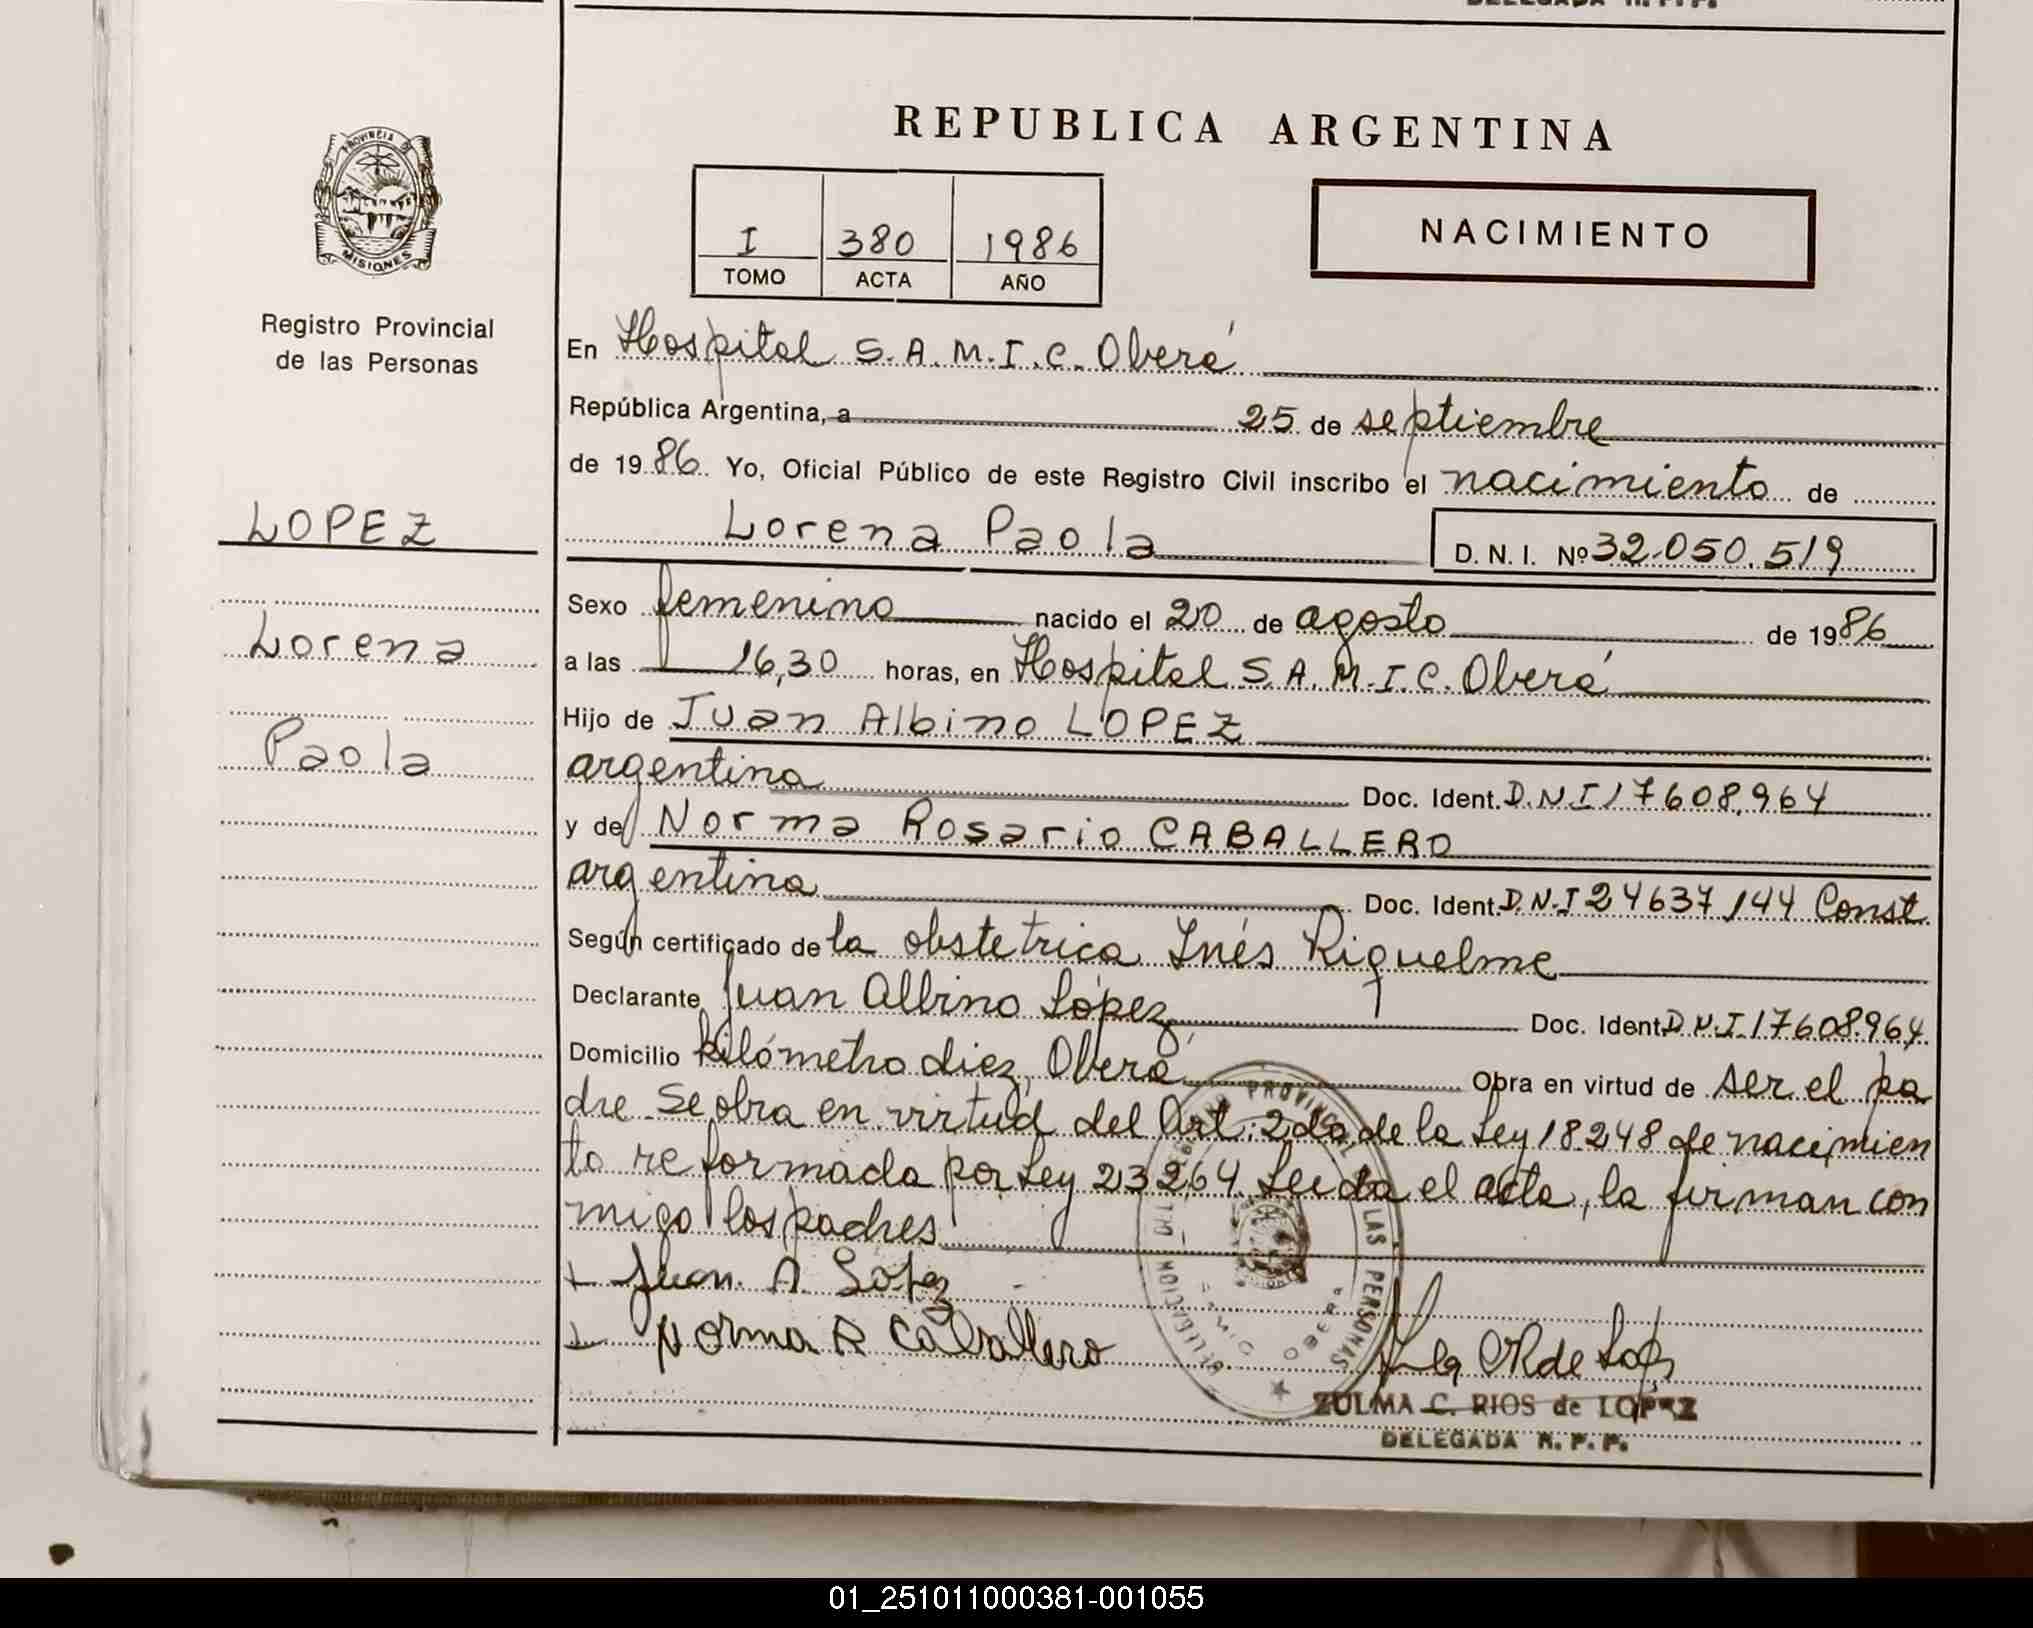 DELEGADA R.P.P.
REPUBLICA ARGENTINA
PROVINCIA DE
MISIONES
I 380 1986
TOMO ACTA AÑO
NACIMIENTO
Registro Provincial
de las Personas
LOPEZ
Lorena
Paola
En Hospital S.A.M.I.C. Oberá
República Argentina, a 25 de septiembre
de 1986 Yo, Oficial Público de este Registro Civil inscribo el nacimiento de
Lorena Paola D.N.I. Nº 32.050.519
Sexo femenino nacido el 20 de agosto de 1986
a las 16,30 horas, en Hospital S.A.M.I.C. Oberá
Hijo de Juan Albino LOPEZ
argentina Doc. Ident. D.N.I 17608.964
y de Norma Rosario CABALLERO
argentina Doc. Ident. D.N.I 24637144 Const
Según certificado de la obstetrica Inés Riquelme
Declarante Juan Albino López Doc. Ident. D.N.I. 17608.964
Domicilio kilómetro diez, Oberá Obra en virtud de ser el pa
dre Se obra en virtud del Art. 2do de la Ley 18248 de nacimien
to reformada por Ley 23264. Leida el acta, la firman con
migo los padres
Juan. A. López
Norma R Caballero
PROVINCIAL DE LAS PERSONAS
DELEGACION
ZULMA C. RIOS de LOPEZ
DELEGADA R.P.P.
01_251011000381-001055